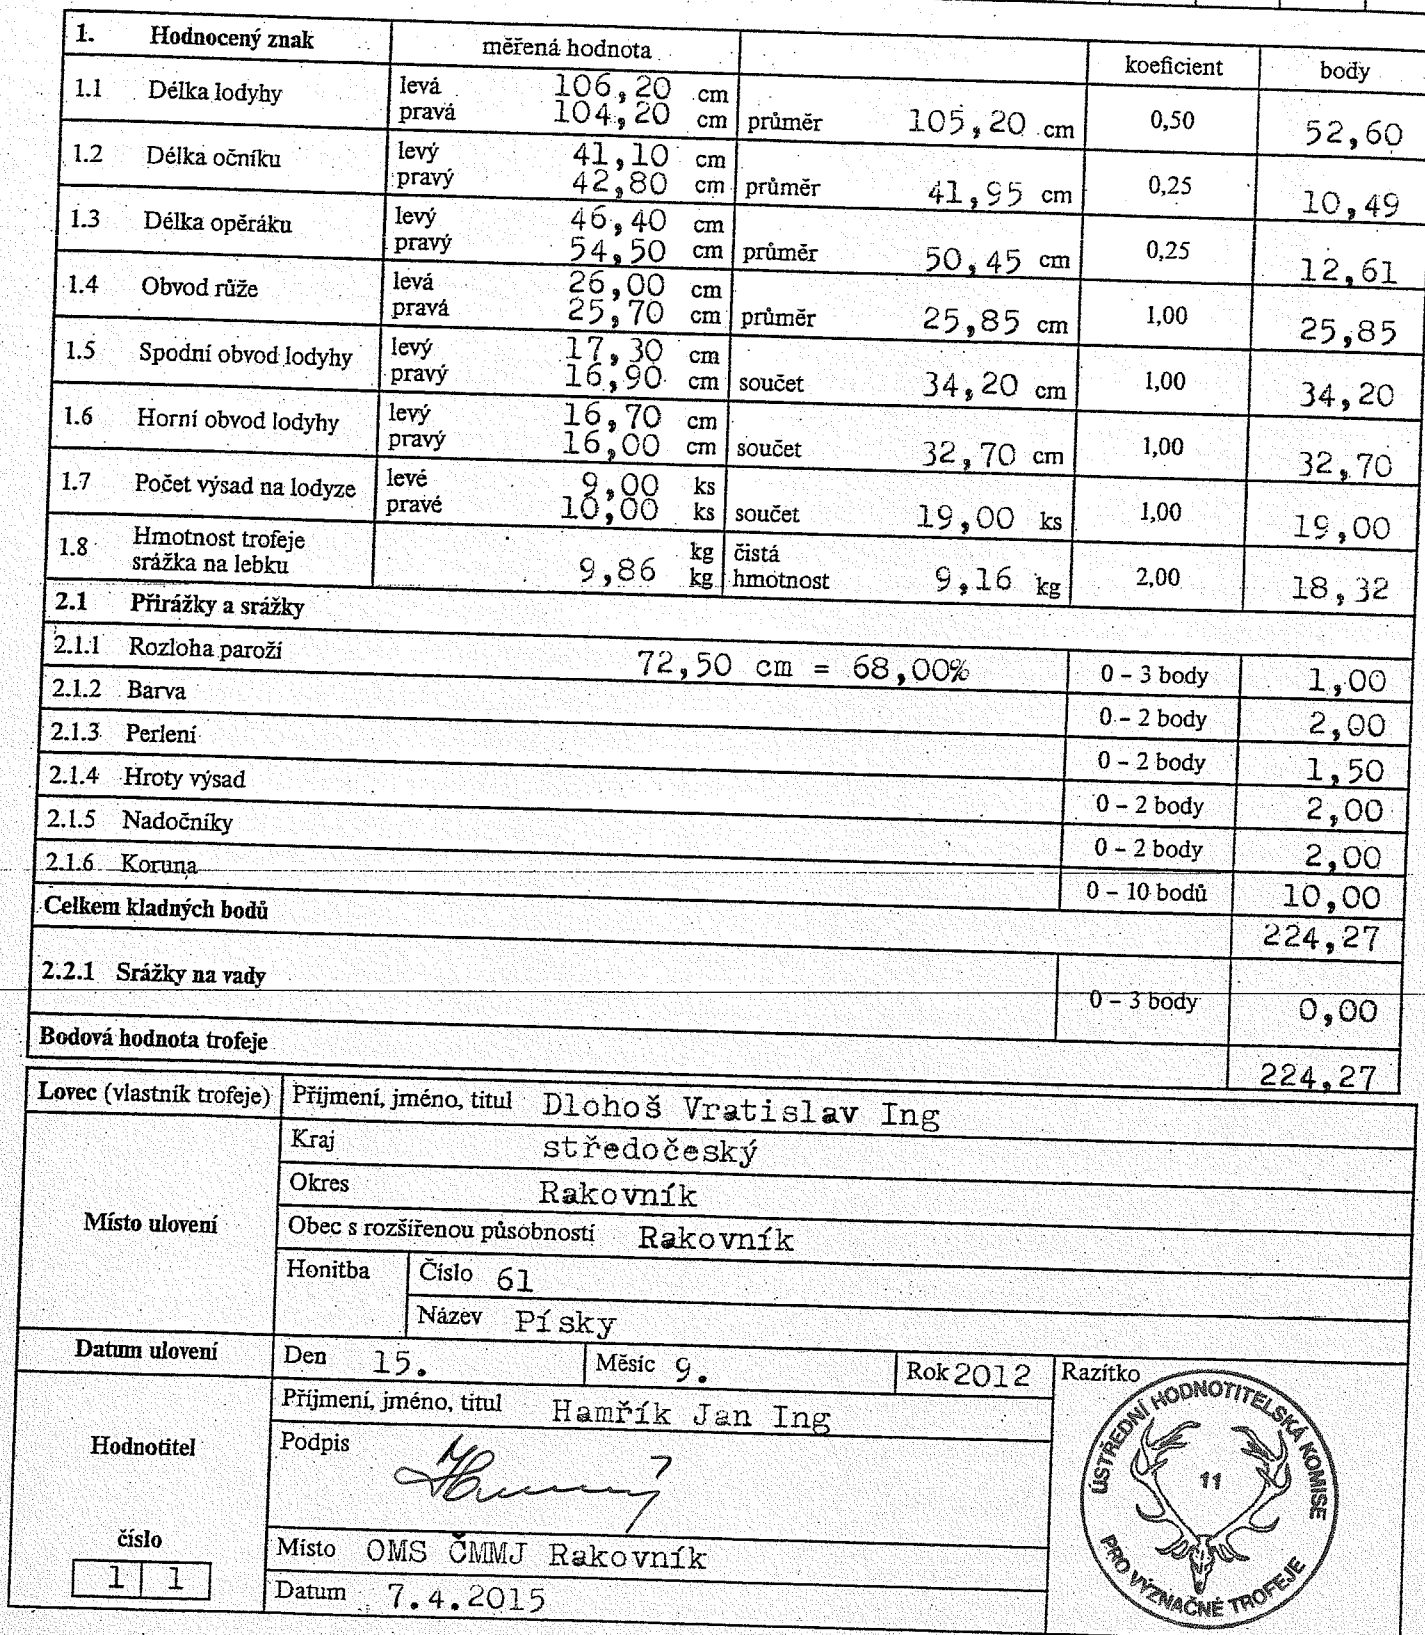 1. Hodnocený znak měřená hodnota koeficient body
1.1 Délka lodyhy levá 106,20 cm
pravá 104,20 cm průměr 105,20 cm 0,50 52,60
1.2 Délka očníku levý 41,10 cm
pravý 42,80 cm průměr 41,95 cm 0,25 10,49
1.3 Délka opěráku levý 46,40 cm
pravý 54,50 cm průměr 50,45 cm 0,25 12,61
1.4 Obvod růže levá 26,00 cm
pravá 25,70 cm průměr 25,85 cm 1,00 25,85
1.5 Spodní obvod lodyhy levý 17,30 cm
pravý 16,90 cm součet 34,20 cm 1,00 34,20
1.6 Horní obvod lodyhy levý 16,70 cm
pravý 16,00 cm součet 32,70 cm 1,00 32,70
1.7 Počet výsad na lodyze levé 9,00 ks
pravé 10,00 ks součet 19,00 ks 1,00 19,00
1.8 Hmotnost trofeje kg čistá
srážka na lebku 9,86 kg hmotnost 9,16 kg 2,00 18,32
2.1 Přirážky a srážky
2.1.1 Rozloha paroží 72,50 cm = 68,00% 0 – 3 body 1,00
2.1.2 Barva 0 – 2 body 2,00
2.1.3 Perlení 0 – 2 body 1,50
2.1.4 Hroty výsad 0 – 2 body 2,00
2.1.5 Nadočníky 0 – 2 body 2,00
2.1.6 Koruna 0 – 10 bodů 10,00
Celkem kladných bodů 224,27
2.2.1 Srážky na vady 0 – 3 body 0,00
Bodová hodnota trofeje 224,27
Lovec (vlastník trofeje) Příjmení, jméno, titul Dlohoš Vratislav Ing
Kraj středočeský
Okres Rakovník
Místo ulovení Obec s rozšířenou působností Rakovník
Honitba Číslo 61
Název Písky
Datum ulovení Den 15. Měsíc 9. Rok 2012 Razítko
Příjmení, jméno, titul Hamřík Jan Ing
Hodnotitel Podpis
číslo Místo OMS ČMMJ Rakovník
1 1 Datum 7.4.2015
ÚSTŘEDNÍ HODNOTITELSKÁ KOMISE
11
PRO VÝZNAČNÉ TROFEJE